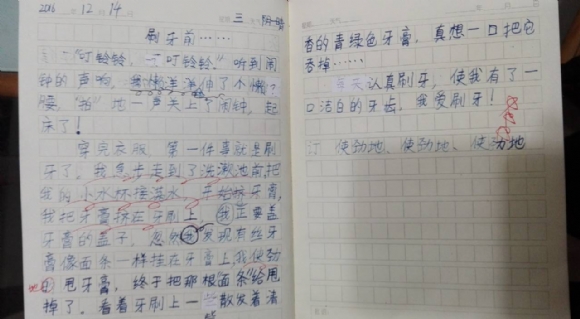 2016 年 12 月 14 日 三 阴-晴
刷牙前……
"叮铃铃，叮铃铃。"听到闹
钟的声响，我懒洋洋伸了个懒
腰，"啪"地一声关上了闹钟，起
床了！
穿完衣服，第一件事就是刷
牙了。我走到了洗漱池前，把
小水杯接温水，开始挤牙膏，
我把牙膏挤在牙刷上，我正要盖
牙膏的盖子，忽然发现有丝牙
膏像面条一样挂在牙膏上，我使劲
地甩牙膏，终于把那根"面条"给甩
掉了。看着牙刷上一散发着清
香的青绿色牙膏，真想一口把它
吞掉……
每天认真刷牙，使我有了一
口洁白的牙齿，我爱刷牙！
订 使劲地、使劲地、使劲地